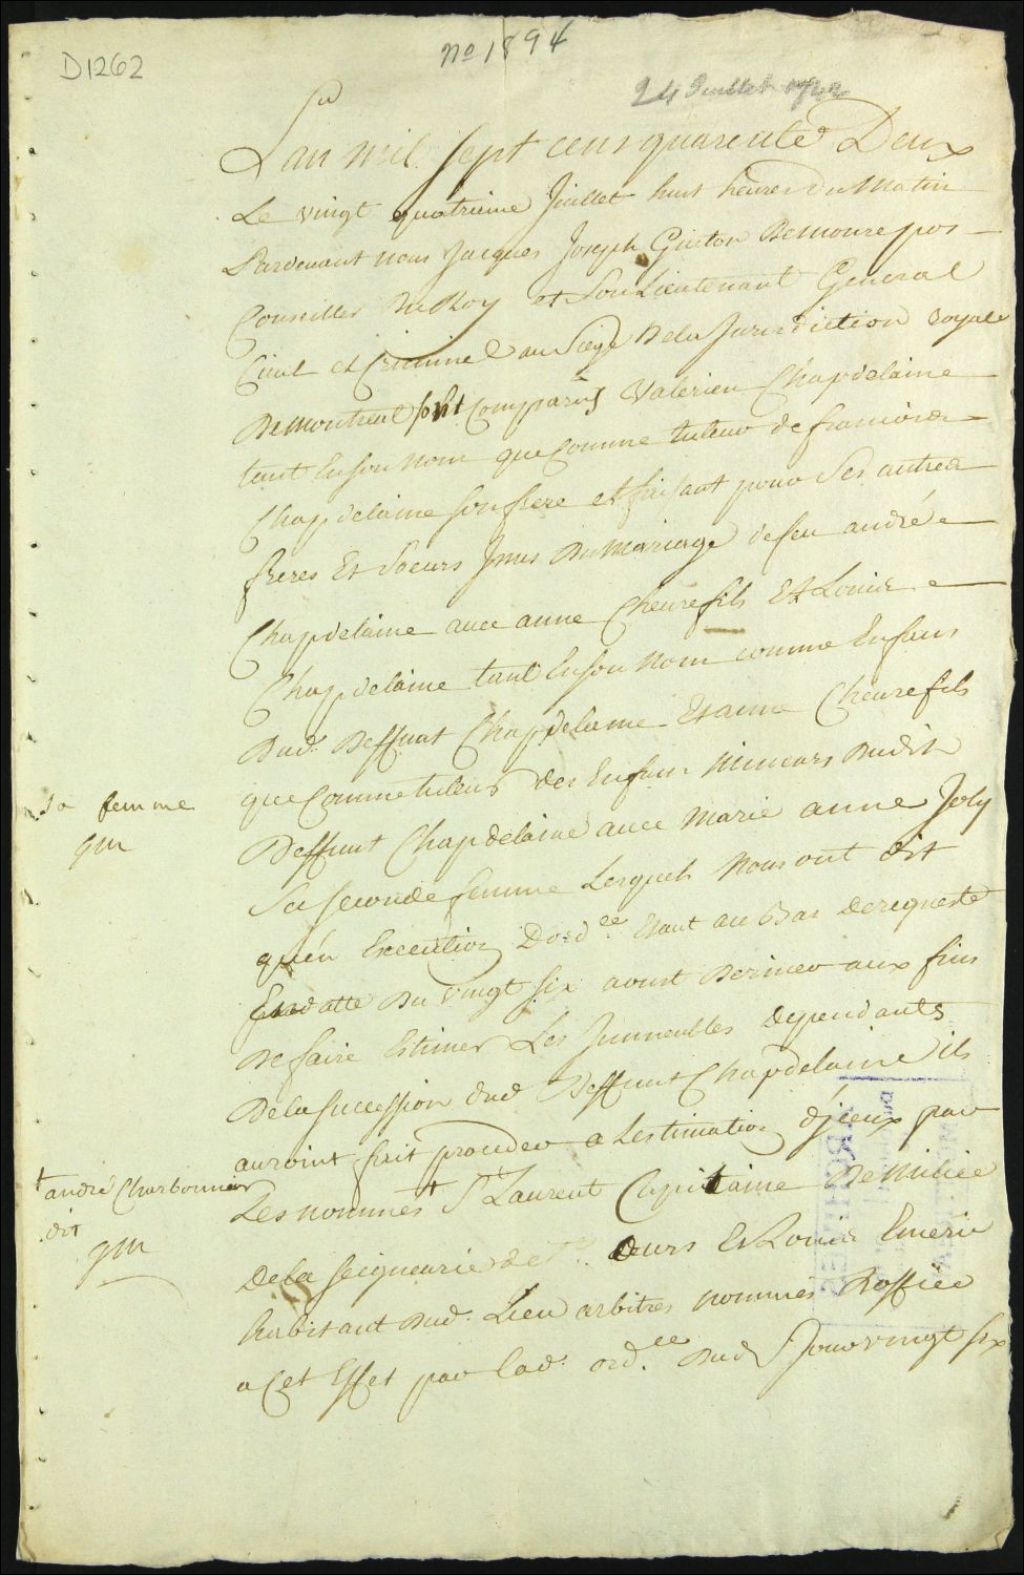 D1262
no 1894
24 Juillet 1742
Lan mil sept cens quarente Deux
Le vingt quatrieme Juillet huit heures du Matin
Pardevant nous Jacques Joseph Guiton Demonrepos
Conseiller Du Roy et Son Lieutenant General
Civil et Criminel au Siege Dela Jurisdiction Royale
De Montreal sont comparus Valerien Chapdelaine
tant En son nom que Comme tuteur de
Chapdelaine son frere et faisant pour Ses autres
freres Et Soeurs Issus Du Mariage de feu andré
Chapdelaine avec anne Chevrefils Et Louis
Chapdelaine tant En son Nom comme Enfans
Dud. Deffunt Chapdelaine Et anne Chevrefils
que Comme tuteur des Enfans Mineurs Dudit
Deffunt Chapdelaine avec Marie anne Joly
Sa seconde femme Lesquels Nous ont dit
qu'en Execution Dord.ce Etant au Bas De requeste
En datte Du vingt six aoust Dernier aux fins
De faire Estimer Les Immeubles dependants
De la succession dud Deffunt Chapdelaine ils
auroint fait proceder a Lestimation d'jceux par
Les nommés + St Laurent Capitaine De Milice
De la seigneurie de Et Louis Emerie
habitant Dud. Lieu arbitres nommés D'office
a Cet Effet par Lad. ord.ce Dud Jour vingt six
sa femme
gm
+ andré Charbonnier
dit
gm
ARCHIVES